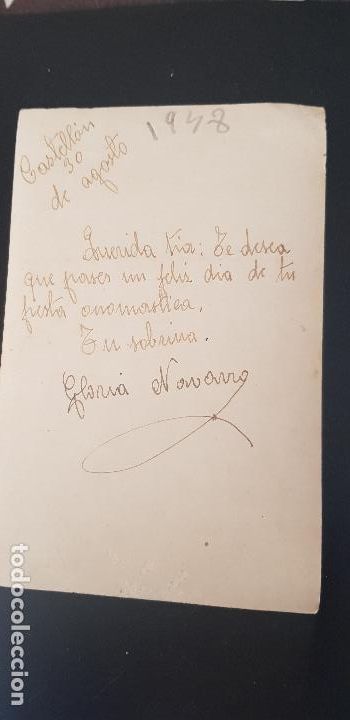 Castellón
30
de agosto
1948
Querida tia: Te desea
que pases un feliz dia de tu
fiesta onomastica.
Tu sobrina.
Gloria Navarro
todocoleccion.net